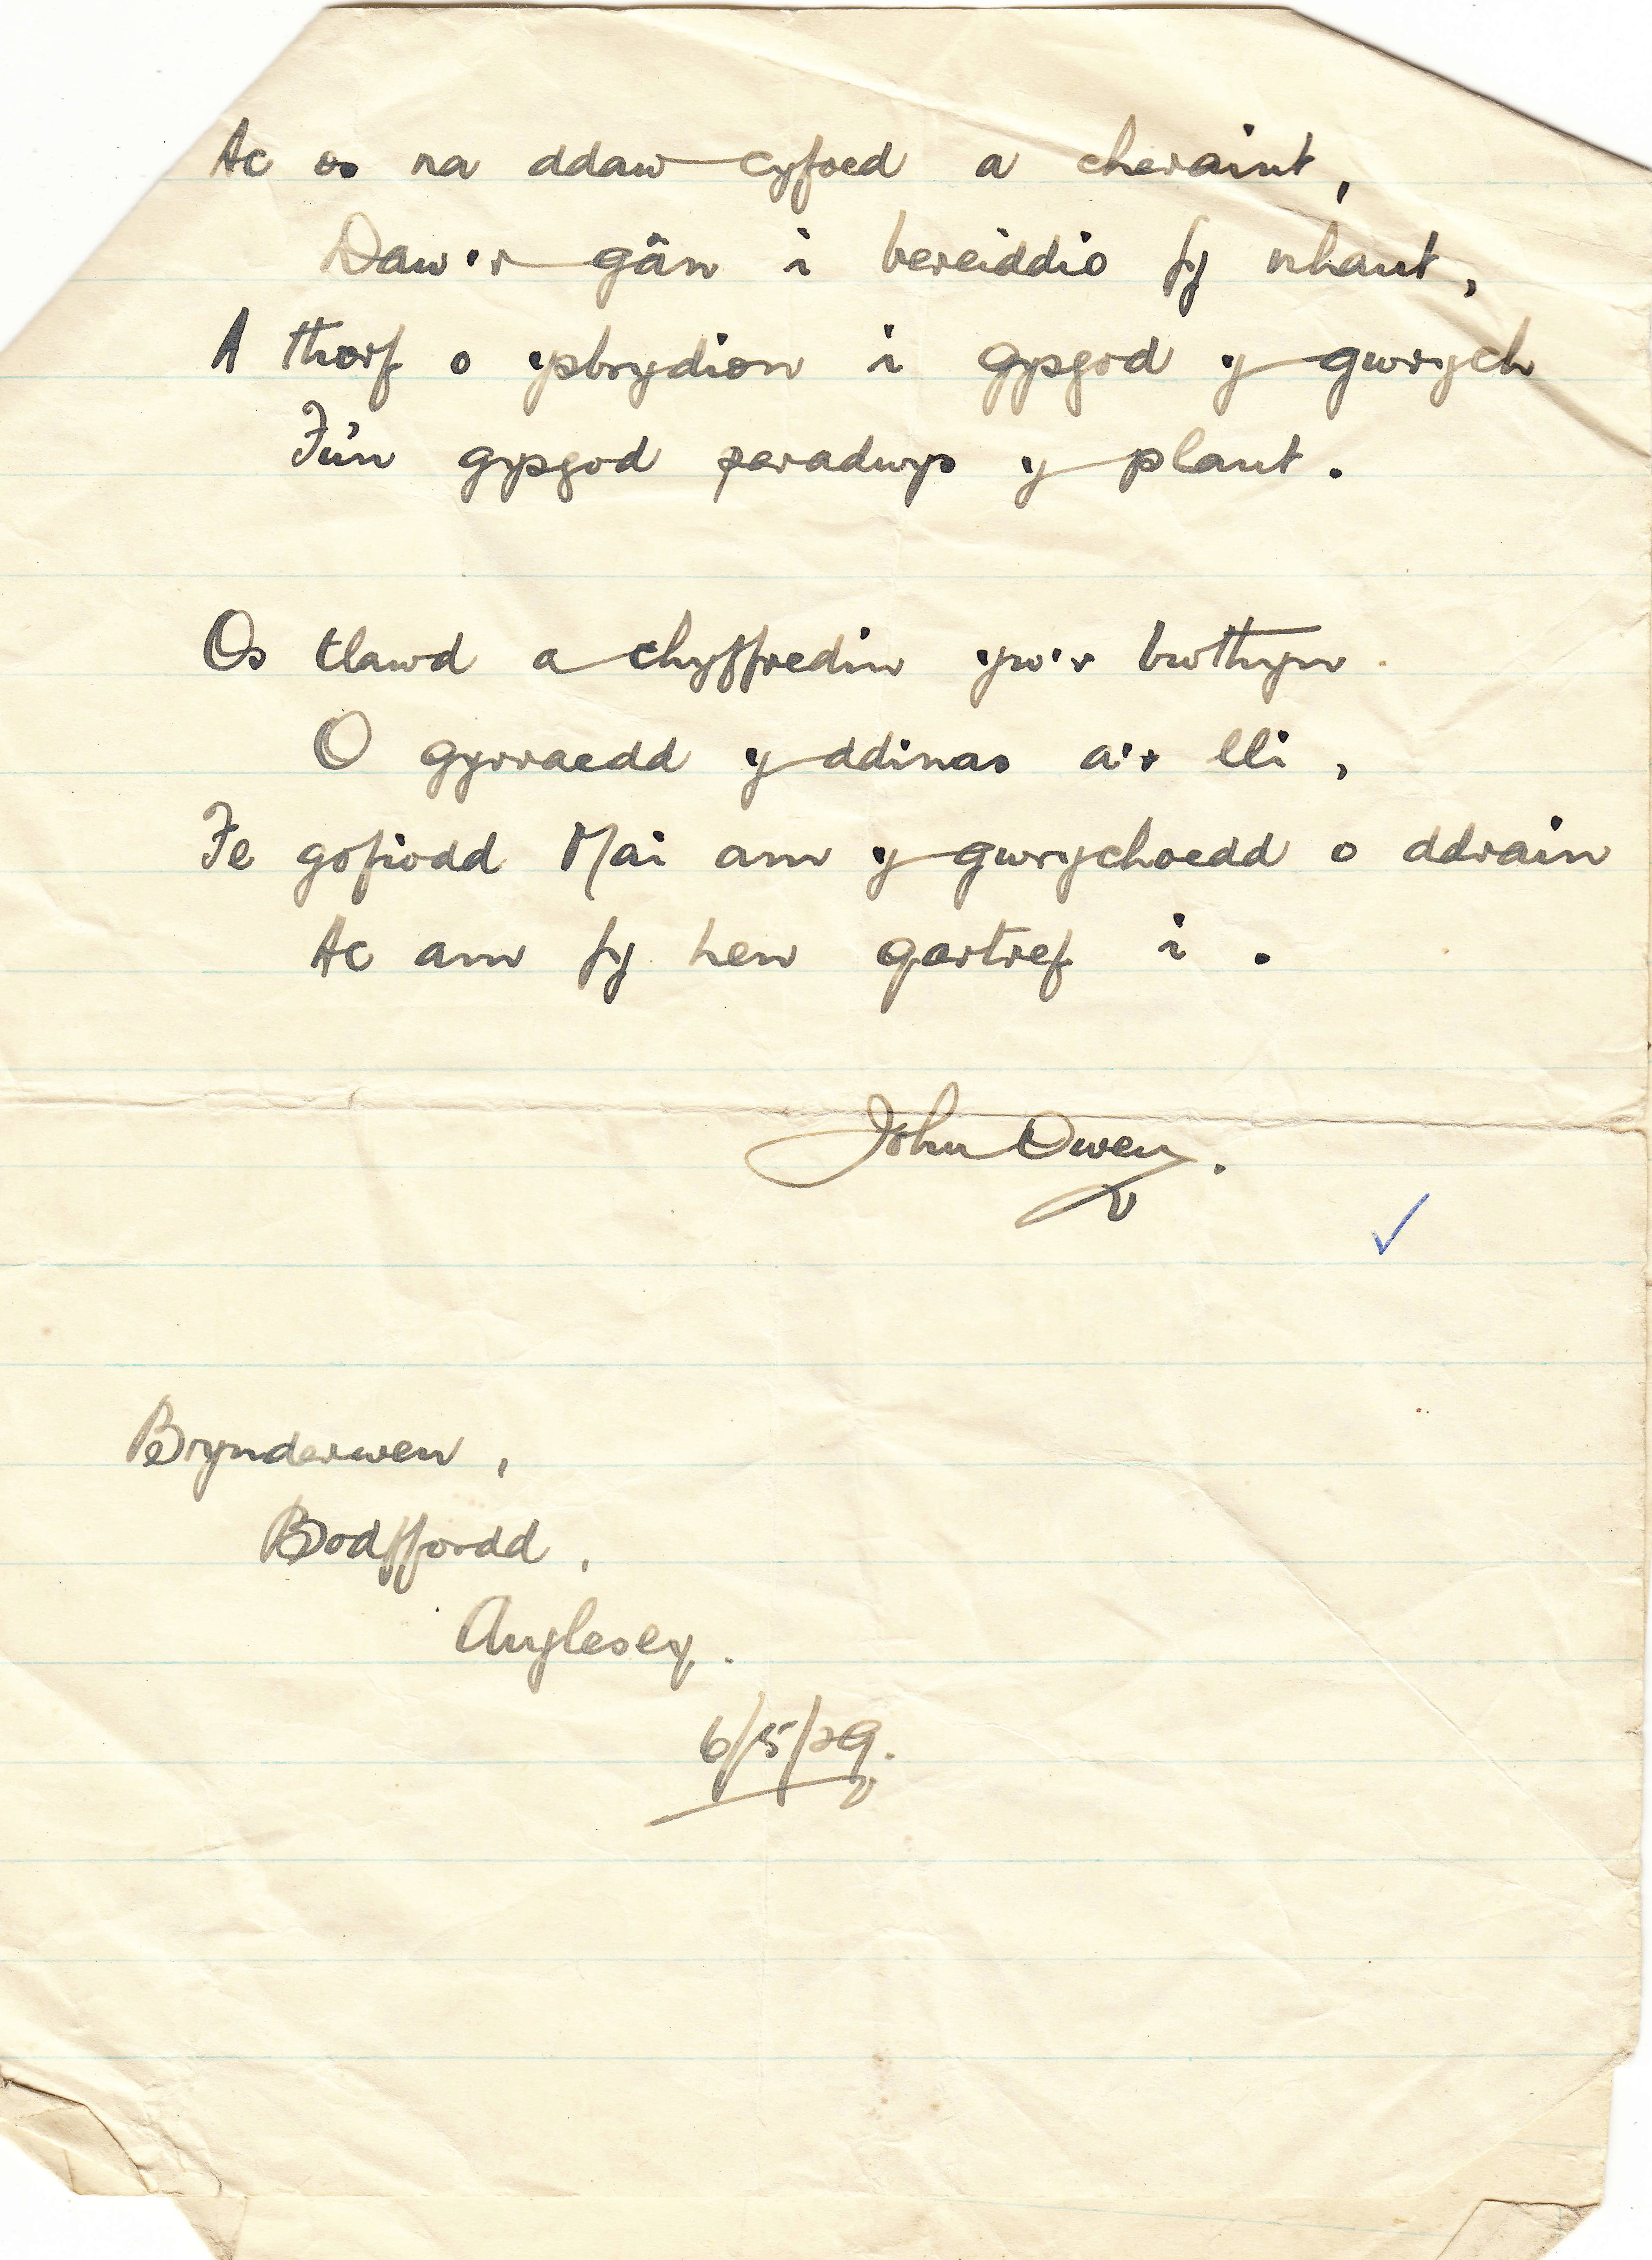 Ac os na ddaw cyfoed a cheraint,
Daw'r gân i bereiddio fy nhant,
A thorf o ysbrydion i gysgod y gwrych
I'w'n gysgod paradwys y plant.
Os tlawd a chyffredin yw'r bwthyn
O gyrraedd y ddinas a'r lli,
Fe gofiodd Mai am y gwrychoedd o ddrain
Ac am fy hen gartref i.
John Owen.
Brynderwen,
Bodffordd,
Anglesey.
6/5/29.